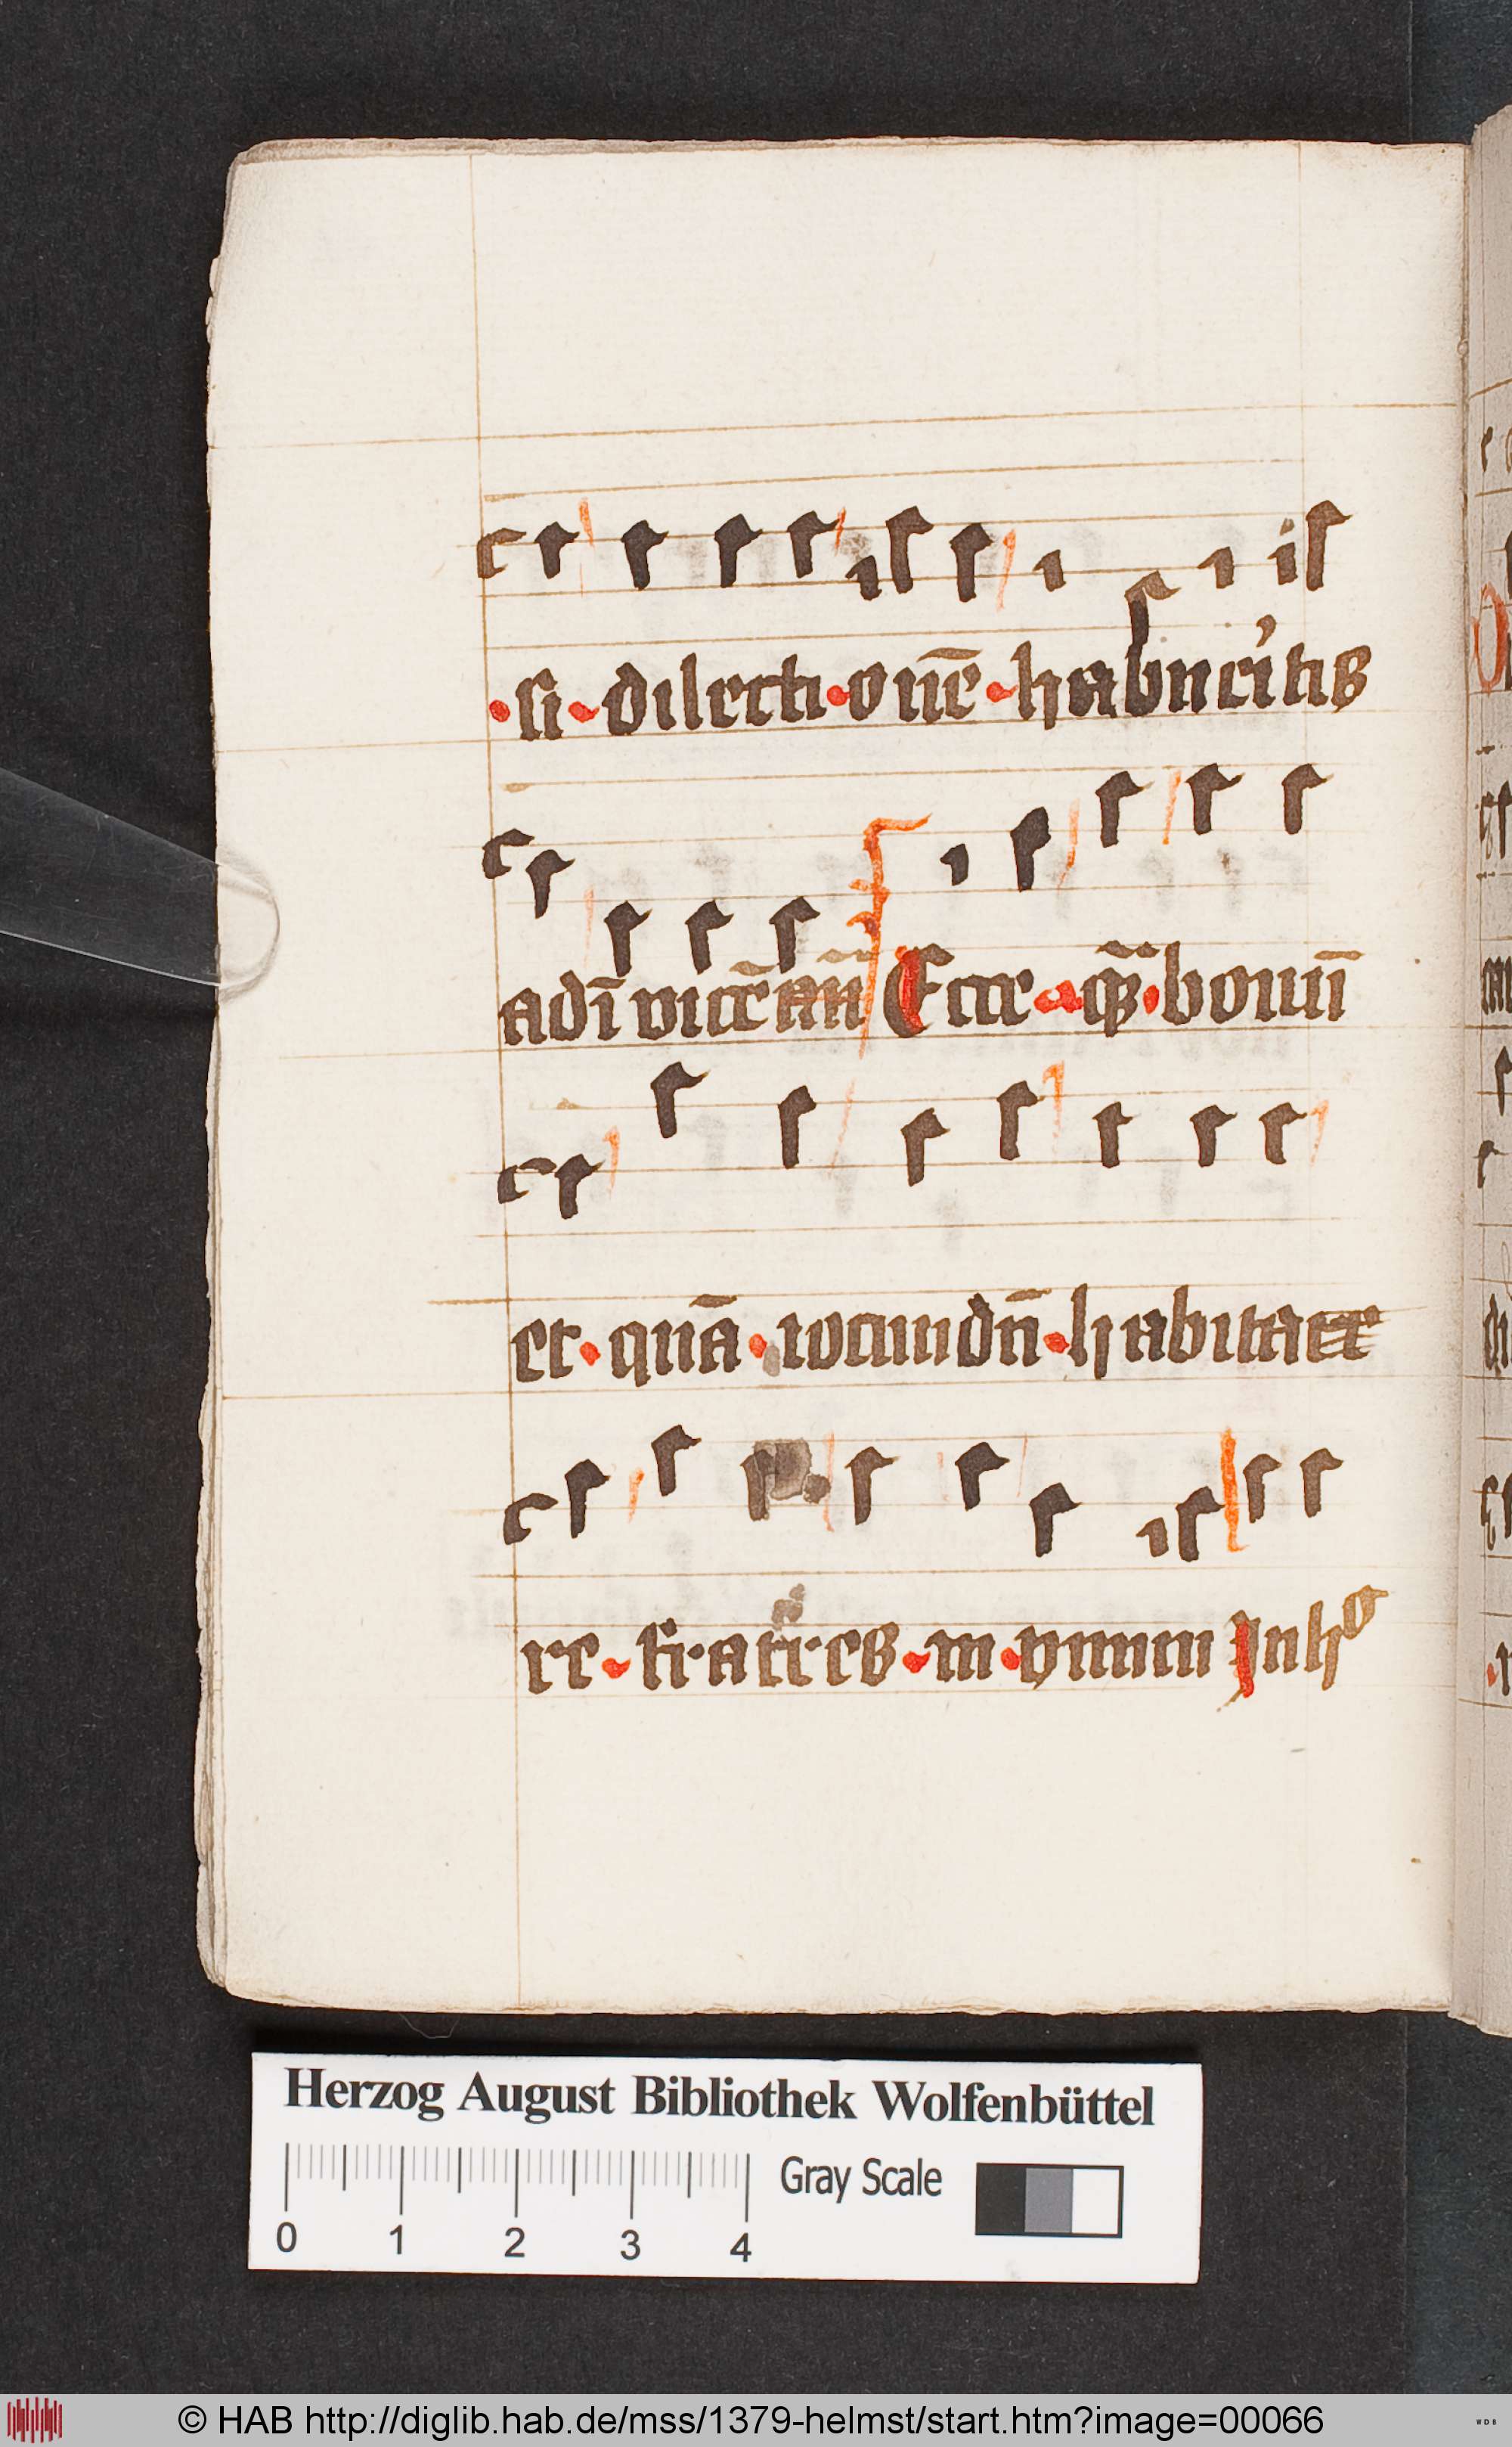 ·si·dilecti·onē·habueritis
adī vicē añ Ecce·q̄·bonū
et·quā·iocundū·habitare
re·fratres·in·vnum Inho
Herzog August Bibliothek Wolfenbüttel
0 1 2 3 4 Gray Scale
© HAB http://diglib.hab.de/mss/1379-helmst/start.htm?image=00066